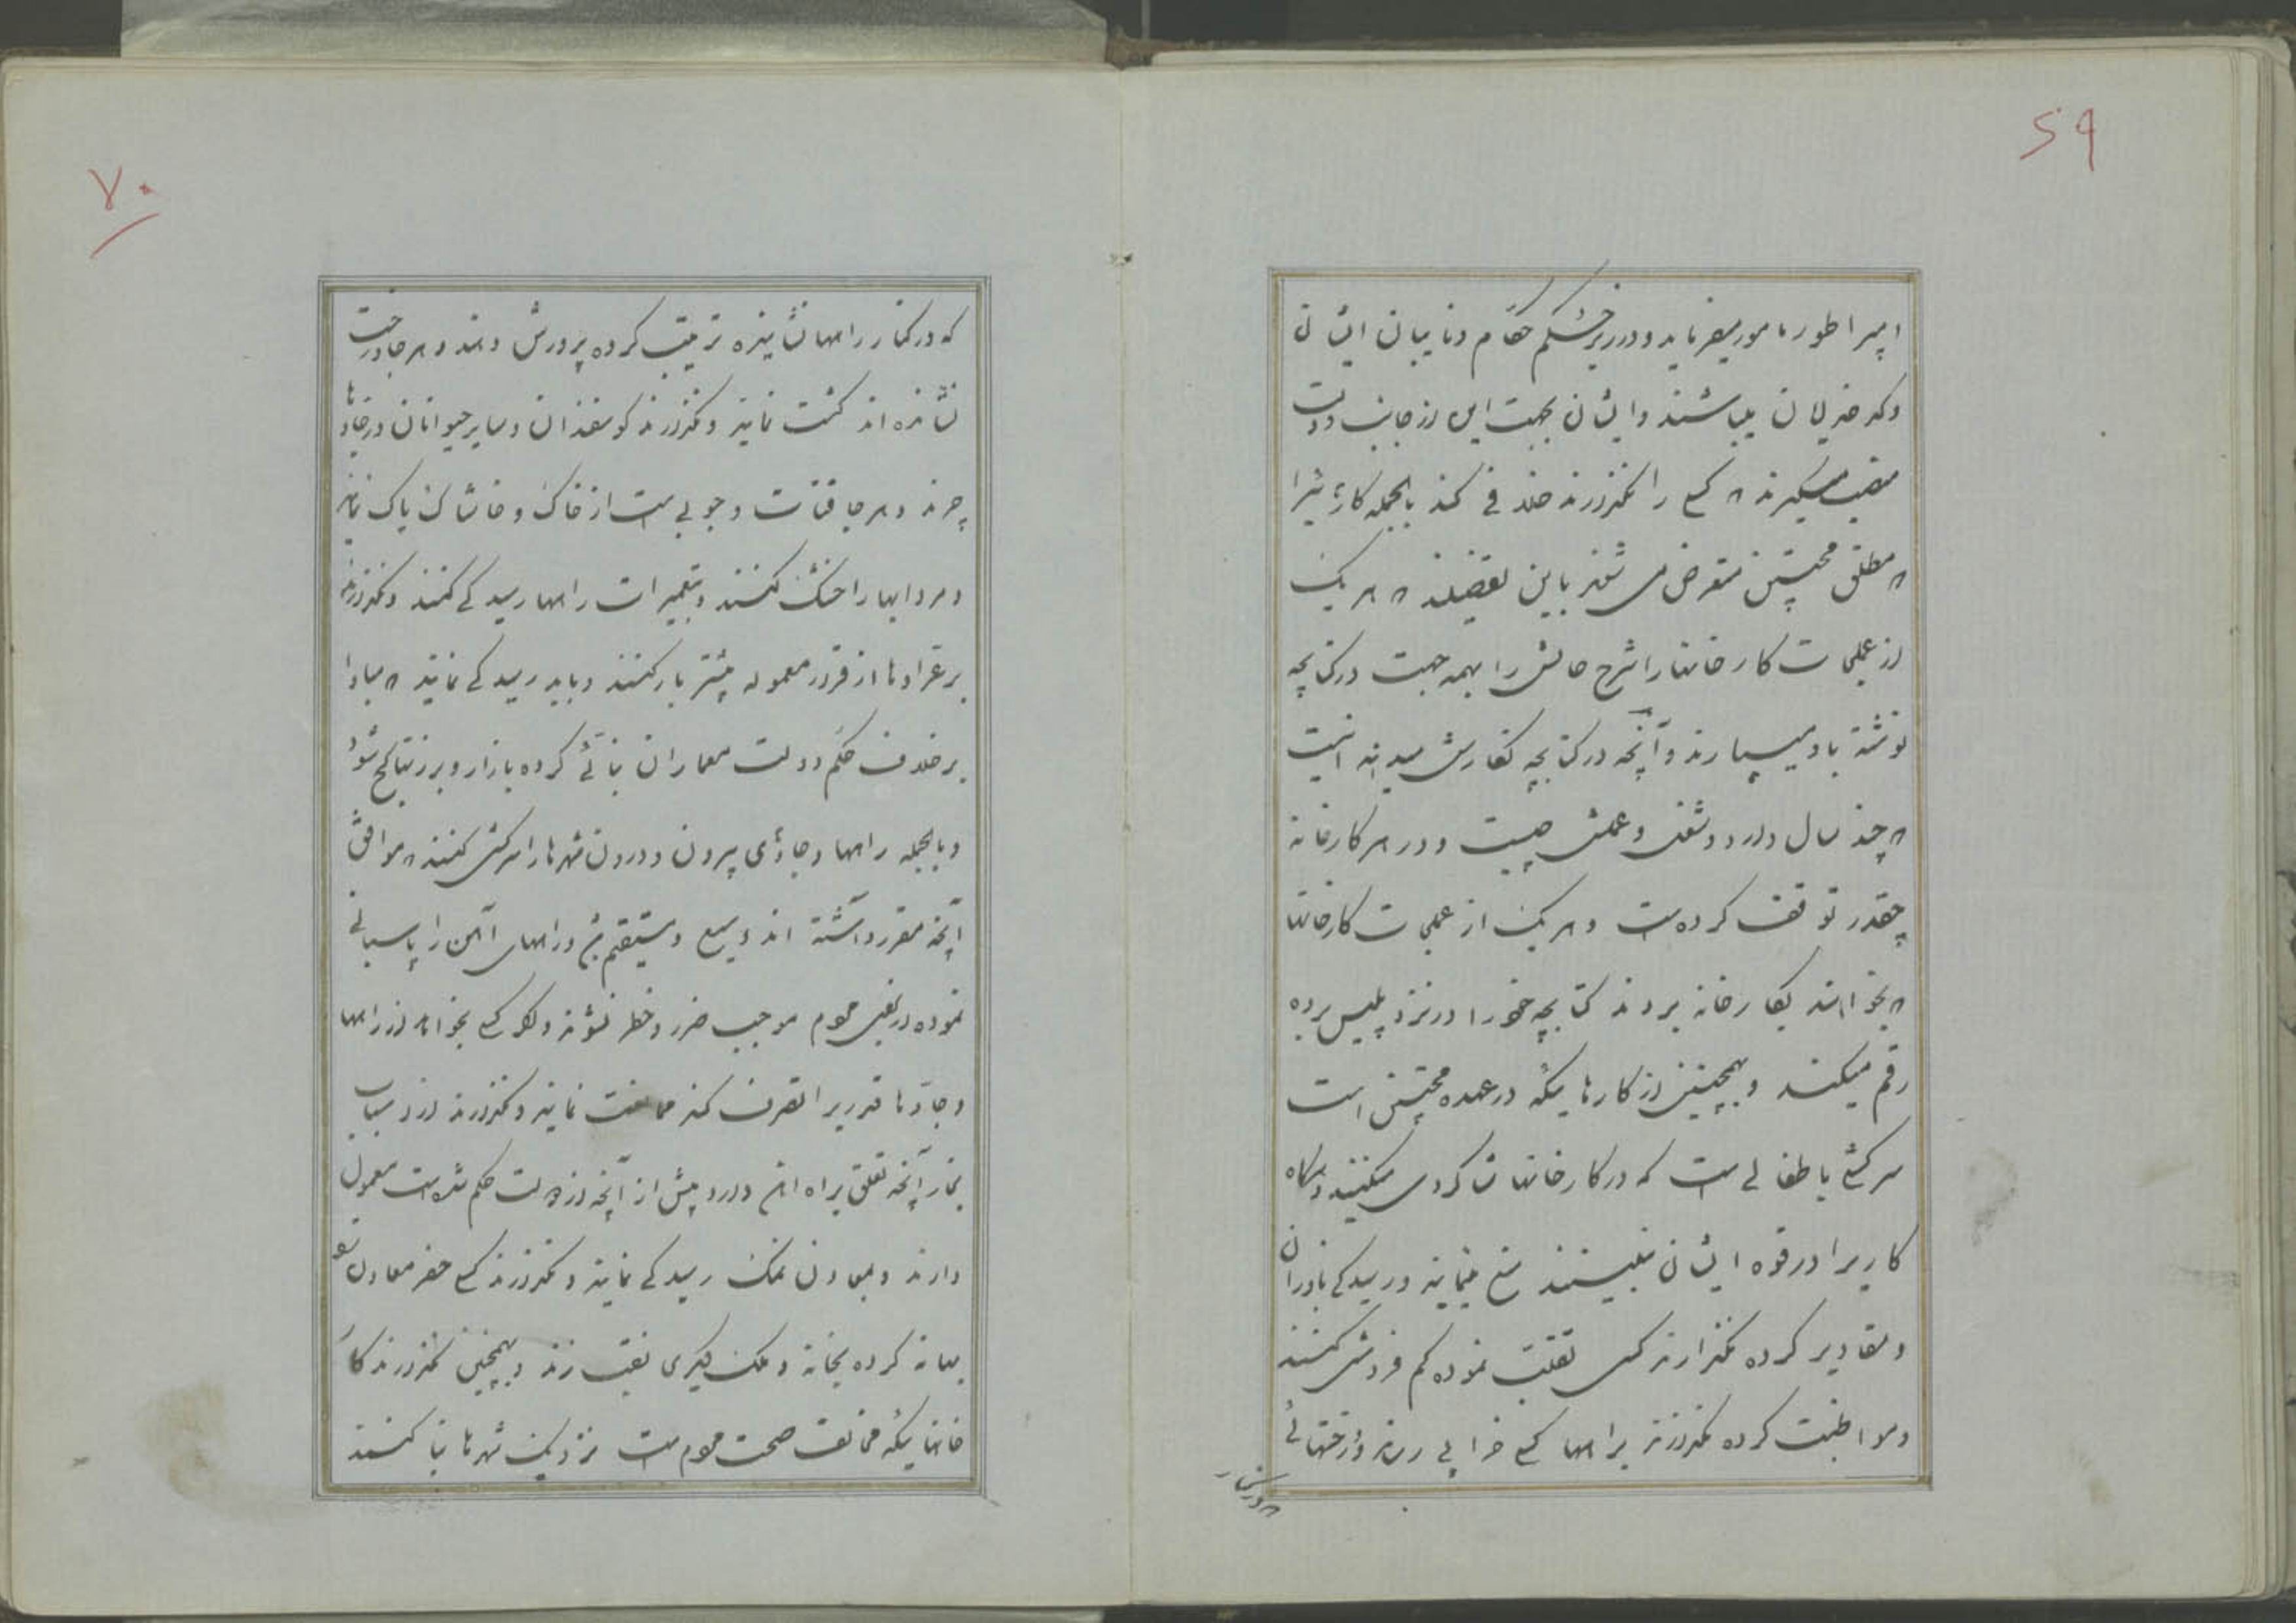 ۶۹
امپراطور مامور میفرماید و در زیر حکم حکام و نایبان ایشان
وکد خدایان میباشند وایشان بجهت این از جانب دولت
منصب میگیرند که کسی را نگذارند خلافی کند بالجمله کارهائیرا
که مطلق محتسبین متعرض می شوند باین تفصیلند که هر یک
از عملجات کارخانها را شرح حالش را بهمه جهت در کتابچه
نوشته باو میسپارند و آنچه در کتابچه نگارش میدهند اینست
که چند سال دارد و شغل و عملش چیست و در هر کارخانه
چقدر توقف کرده است و هر یک از عملجات کارخانها
که بخواهند بکارخانه بروند کتابچه خود را در نزد پلیس برده
رقم میکند و همچنین از کارهائیکه در عهده محتسبین است
سرکشی باطفالی است که در کارخانها شاگردی میکنند و هرگاه
کاریرا در قوه ایشان نبینند منع مینمایند و رسیدگی باوزان
و مقادیر کرده نگذارند کسی تقلب نموده کم فروشی کنند
و مواظبت کرده نگذارند براهها کسی خرابی رساند و درختهائی
که در کنار
۷۰
که در کنار راهها نشانیده تربیت کرده پرورش دهند و هر جا درخت
نشانده اند گشت نمایند و نگذارند گوسفندان و سایر حیوانات در جادها
چرند و هر جا قنات و جوبی است از خاک و خاشاک پاک نمایند
و مردابها را خشک کنند و بتعمیرات راهها رسیدگی کنند و نگذارند
بر عرادها از قرار معموله بیشتر بار کنند و باید رسیدگی نمایند که مبادا
برخلاف حکم دولت معماران بنائی کرده بازار و برزنها کج شود
و بالجمله راهها و جادهای بیرون و درون شهرها را سرکشی کنند که موافق
آنچه مقرر داشته اند وسیع و مستقیم باشد و راههای آهن را پاسبانی
نموده در بعض عموم موجب ضرر و خطر نشوند و اگر کسی بخواهد از راهها
و جادها قدریرا تصرف کند ممانعت نمایند و نگذارند از اسباب
بخار آنچه تعلق براه آهن دارد بیش از آنچه از دولت حکم شده است معمول
دارند و بمعادن نمک رسیدگی نمایند و نگذارند کسی حفر معادن را
بهانه کرده بخانه و ملک دیگری نقب زند و همچنین نگذارند کار
خانهائیکه مخالف صحت عموم است نزدیک شهرها بنا کنند